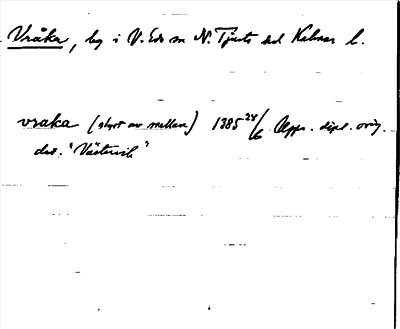 Vråka, beg i V. Eds sn N. Tjusts hd Kalmar l.
vraka (skrivet av mellan) 1385 24/6 Upps. dipl. orig.
dat. "Västervik"